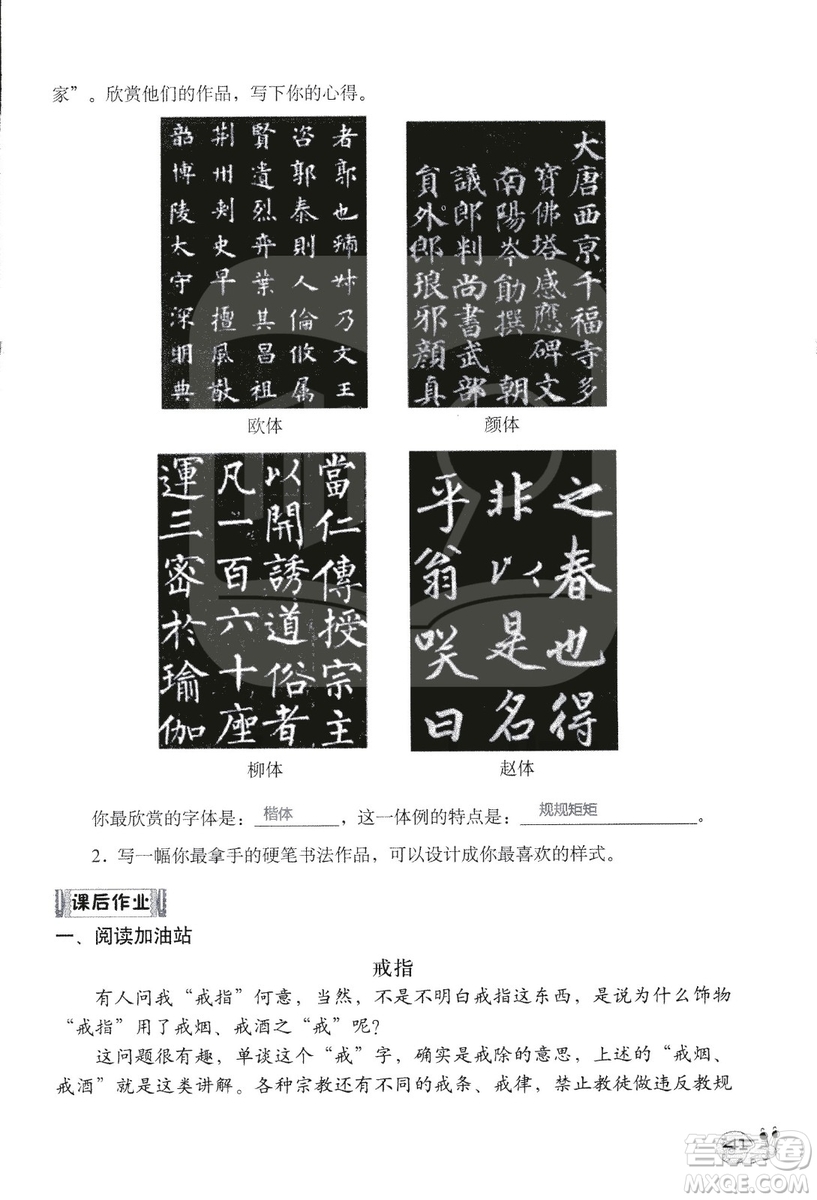 家”。欣赏他们的作品，写下你的心得。
者郭也稀叔乃文王
咨郭泰則人倫攸属
賢遺烈弈葉其昌祖
荆州刺史早擅風猷
韶博陵太守深明典
欧体
大唐西京千福寺多
寶佛塔感應碑文
南陽岑勛撰 朝
議郎判尚書武部
員外郎琅邪顔真
颜体
當仁傳授宗主
以開誘道俗者
凡一百六十座
運三密於瑜伽
柳体
之春也得
非以是名
乎翁咲曰
赵体
你最欣赏的字体是：楷体，这一体例的特点是：规规矩矩。
2．写一幅你最拿手的硬笔书法作品，可以设计成你最喜欢的样式。
课后作业
一、阅读加油站
戒指
有人问我“戒指”何意，当然，不是不明白戒指这东西，是说为什么饰物
“戒指”用了戒烟、戒酒之“戒”呢？
这问题很有趣，单谈这个“戒”字，确实是戒除的意思，上述的“戒烟、
戒酒”就是这类讲解。各种宗教还有不同的戒条、戒律，禁止教徒做违反教规
41
答案圈
MXQE.COM